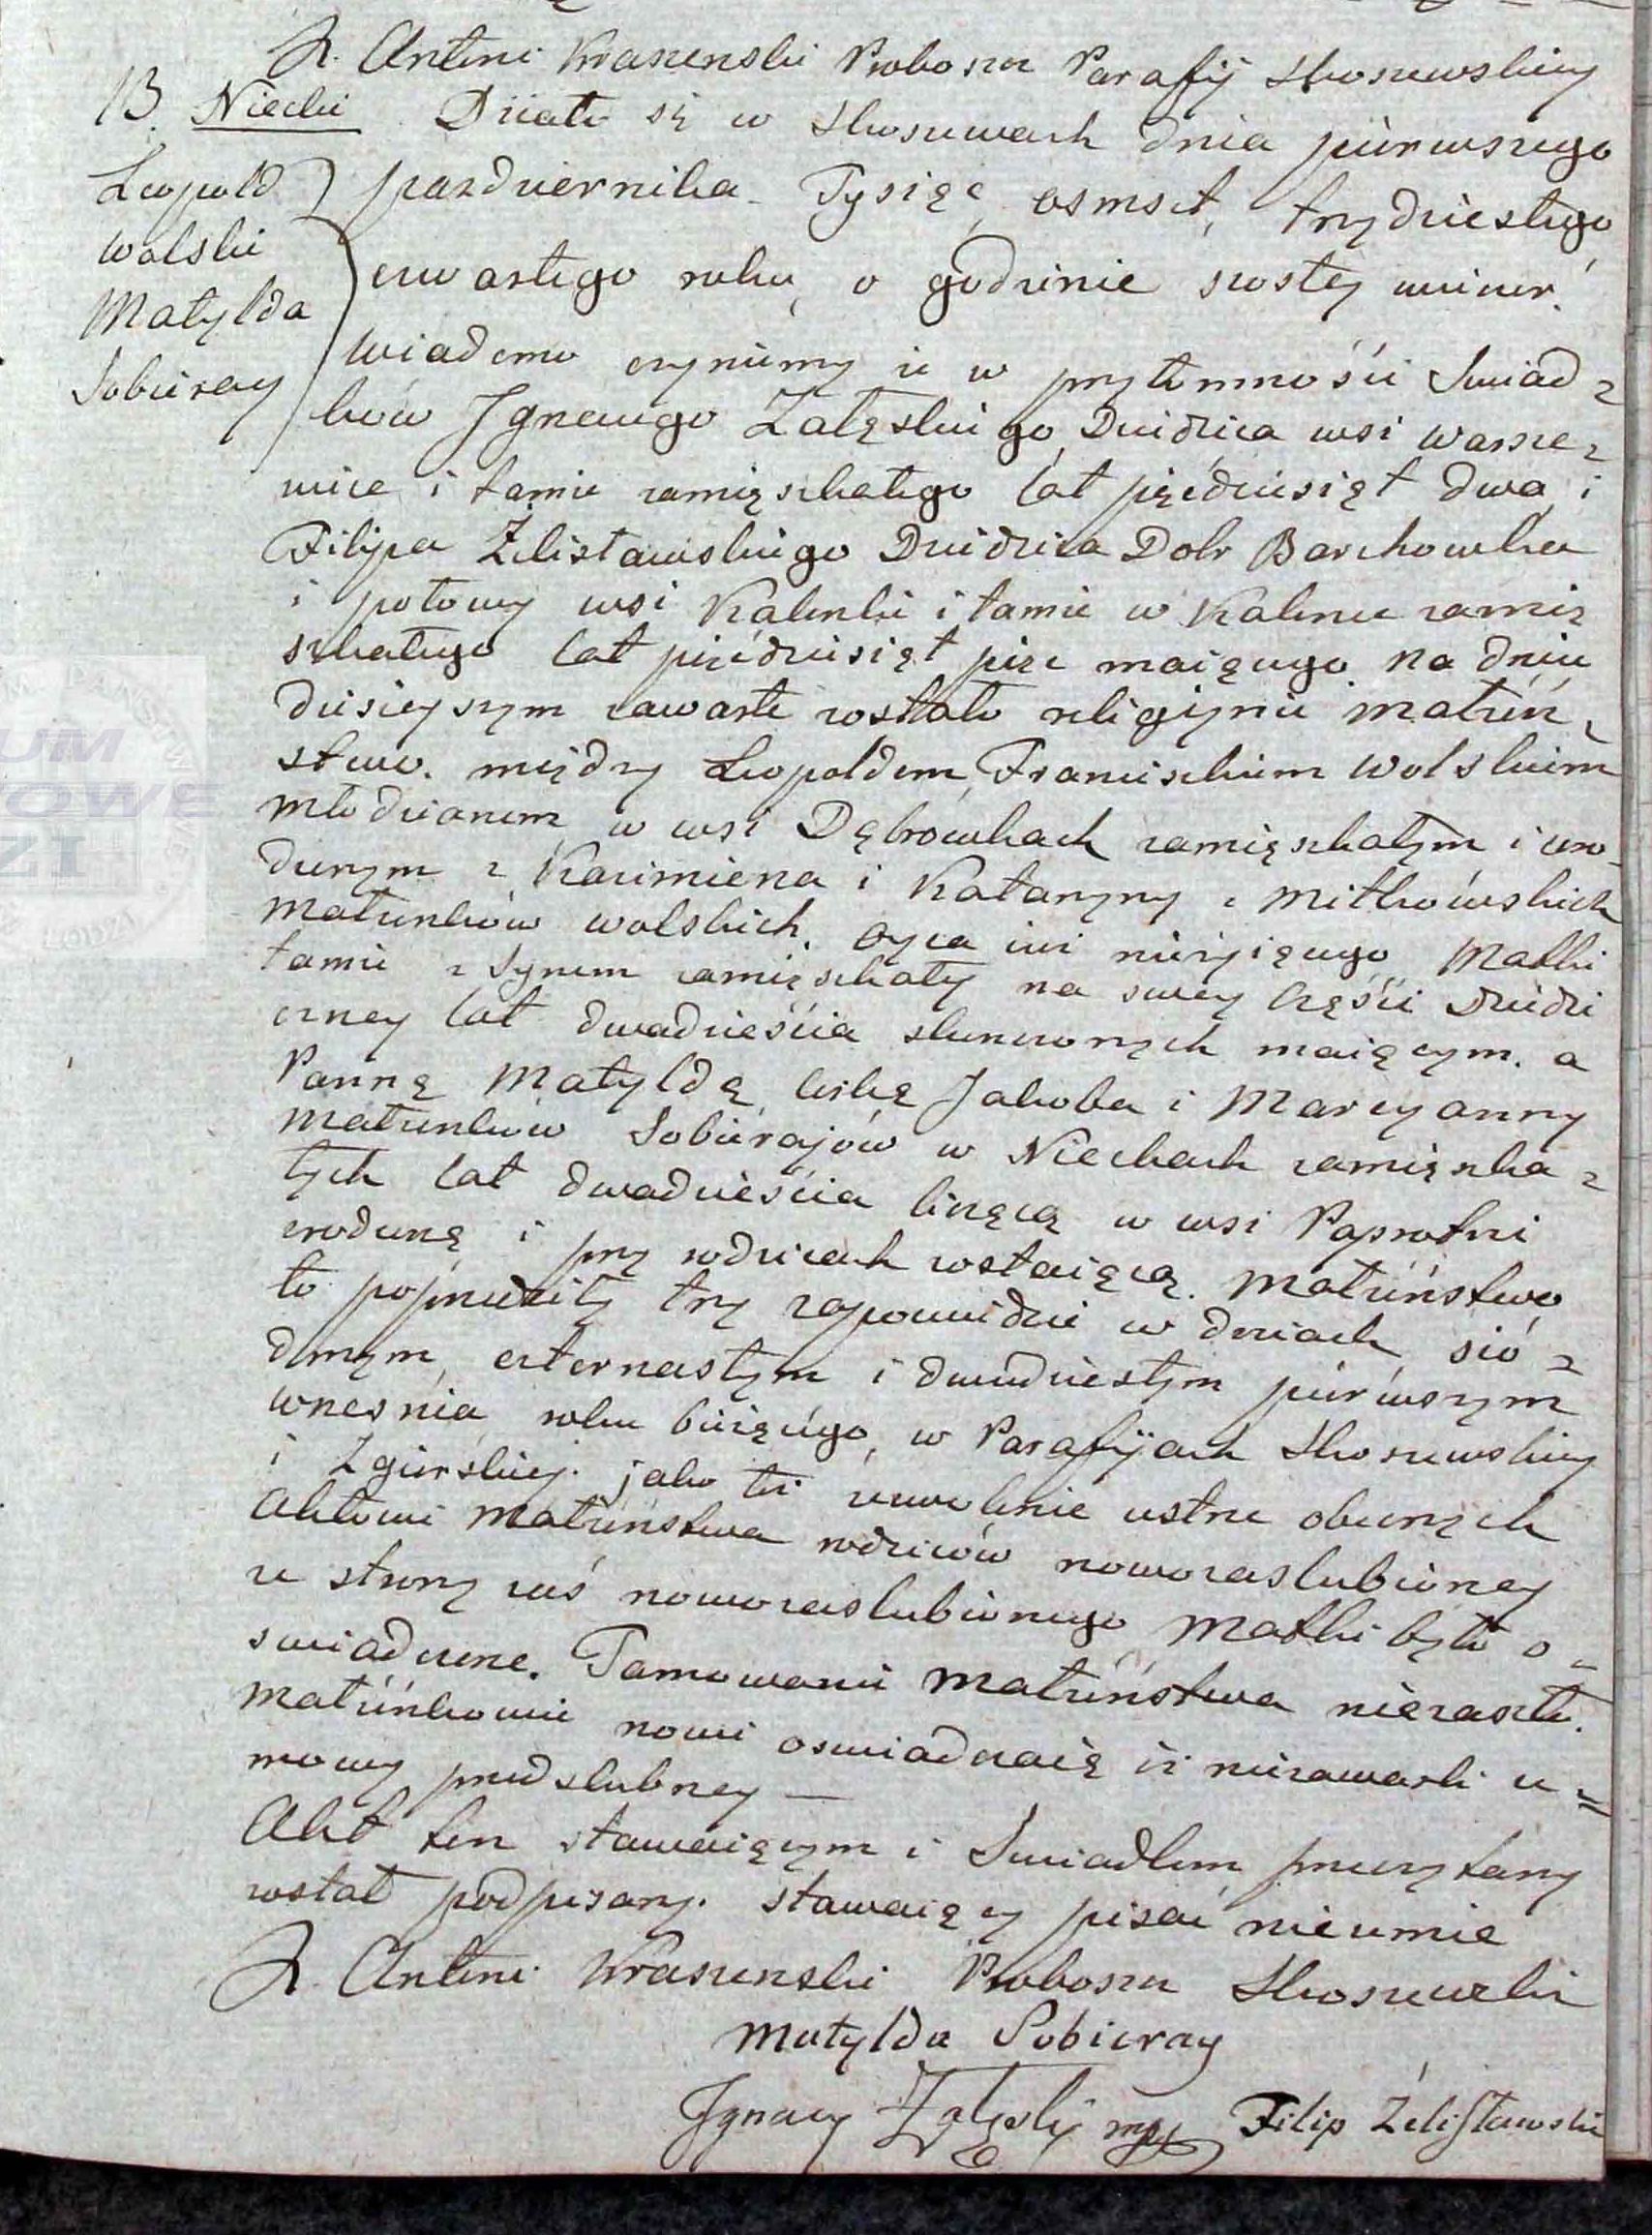 X. Antoni Kraszenski Proboszcz Parafij Skoszewskiey
13. Niecki Działo się w Skoszewach dnia pierwszego
Leopold października Tysiąc, osmset, trzydziestego
Wolski czwartego roku, o godzinie szostey wieczor.
Matylda wiadomo czyniemy że w przytomności Swiad-
Sobieray kow Ignacego Załęskiego, Dziedzica wsi Warsze-
wice i tamże zamięszkałego lat pięćdziesiąt dwa, i
Filipa Żelisławskiego Dziedzica Dobr Borchowka
i połowy wsi Kalenki i tamże w Kalence zamię
szkałego lat pięćdziesiąt pięc maiącego. Na dniu
dzisieyszym zawarte zostało religijnie małżeń-
stwo. między Leopoldem, Franciszkiem Wolskiem
młodzianem, w wsi Dąbrowkach zamięszkałym i uro-
dzonym z Kazimierza i Katarzyny z Mitkowskich
Małżonków Wolskich. Oyca już nieżyiącego, Matki
tamże z Synem zamięszkały na swey Części Dziedzi
czney lat dwadzieścia skonczonych maiącym. a
Panną Matyldą, córką Jakoba i Marcyanny
Małżonków Sobierajów w Nieckach zamięszka-
łych lat dwadzieścia liczącą w wsi Paprotni
urodzoną i przy rodzicach zostaiącą. Małżeństwo
to poprzedziły trzy zapowiedzie w dniach, siò-
dmym, czternastym i dwudziestym pierwszym
wrzesnia, roku bieżącego, w Parafijach Skoszewskiey
i Zgierskiej. jako też zezwolenie ustne obecnych
Aktowi Małżeństwa rodziców nowozaslubioney
ze strony zaś nowozaslubionego Matki było o-
swiadczone. Tamowanie Małżeństwa niezaszło.
Małżonkowie nowi oswiadczaią iż niezawarli u=
mowy przedslubney —
Akt ten stawaiącym i Swiadkom przeczytany
został podpisany. stawaiący pisać nieumie
X. Antoni Kraszenski Proboszcz Skoszewski
Matylda Sobieray
Ignacy Załęski mpp Filip Żelisławski
UM
OWE
ZI
PAŃSTWOWE
ŁODZI